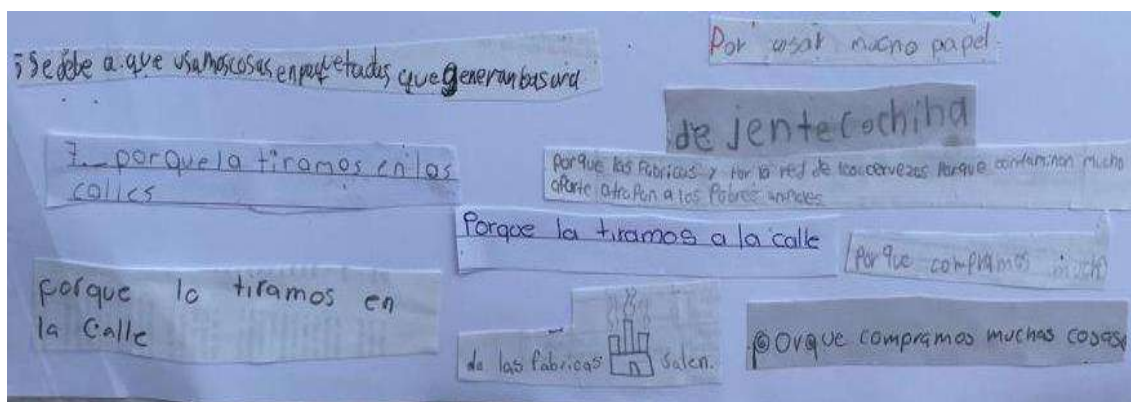 ¡Se debe a que usamos cosas enpaquetadas que generan basura
Por usar mucho papel.
de jente cochina
7._ porque la tiramos en las
calles
porque las Fabricas y Por la red de las cervezas Porque contaminan mucho
aParte atraPan a los Pobres animales
Porque la tiramos a la calle
Por que compramos mucho
porque lo tiramos en
la Calle
de las fabricas salen.
porque compramos muchas cosas